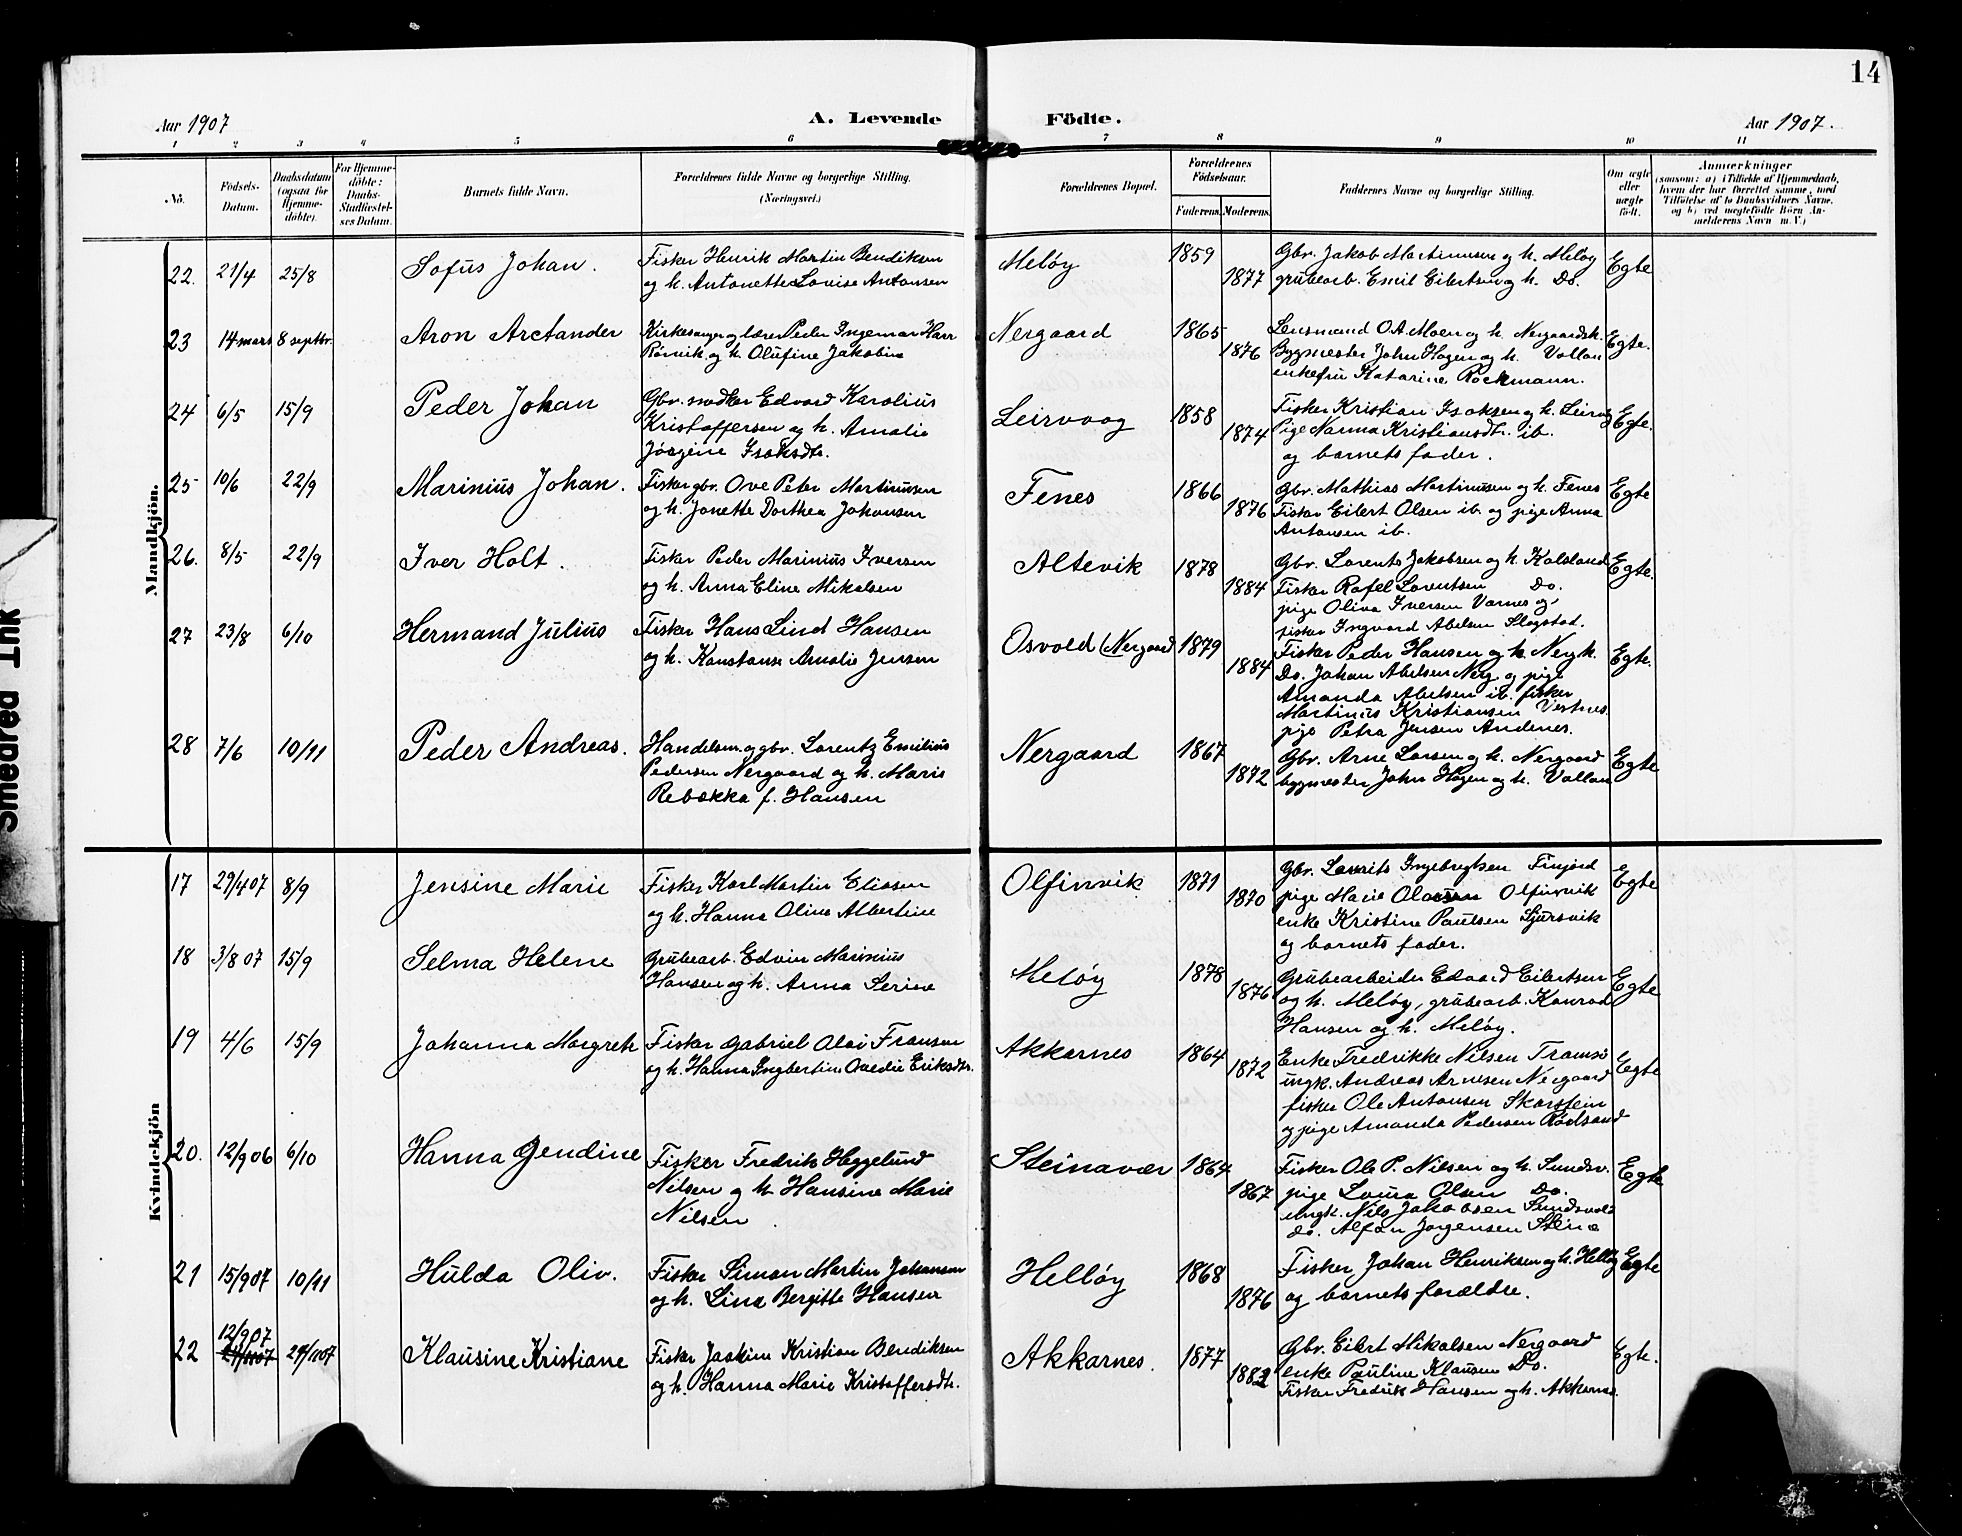 14
Aar 1907
A. Levende
Födte.
Aar 1907.
1 2 3 4 5 6 7 8 9 10 11
No.
Födsels-Datum.
Daabsdatum (ogsaa for Hjemme-döbte).
For Hjemme-döbte: Daabs-Stadfæstel-ses Datum.
Barnets fulde Navn.
Forældrenes fulde Navne og borgerlige Stilling. (Næringsvei.)
Forældrenes Bopæl.
Forældrenes Födselsaar.
Faderens. Moderens.
Faddernes Navne og borgerlige Stilling.
Om ægte eller uægte födt.
Anmærkninger
(saasom: a) i Tilfælde af Hjemmedaab, hvem der har forrettet samme, med Tilföielse af to Daabsvidners Navne, og b) ved uægtefödte Börn Anmelderens Navn m. V.)
Mandkjön.
22. 21/4 25/8 Sofus Johan. Fisker Henrik Martin Bendiksen Meløy 1859 Gbr. Jakob Martinusen og h. Meløy Egte
og h. Antonette Lovise Antonsen 1877 grubearb. Emil Eilertsen og h. Do.
23 14 mars 8 septbr. Aron Arctander Kirkesanger og lærer Peder Ingemar Harr Nergaard 1865 Lensmand O.A. Moen og h. Nergaardsh. Egte.
Rörvik og h. Olufine Jakobine 1876 Bygmester John Hagen og h. Vollan
enkefru Katarine Rockmann.
24 6/5 15/9 Peder Johan Gbr. snedker Edvard Karolius Leirvaag 1858 Fisker Kristian Isaksen og h. Leirvg Egte.
Kristoffersen og h. Amalie 1874 Pige Narma Kristiansdtr. ib.
Jörgine Isaksdtr. og barnets fader.
25 10/6 22/9 Marinius Johan. Fisker gbr. Ove Peter Martinusen Fenes 1866 Gbr. Mathias Martinusen og h. Fenes Egte
og h. Jonette Dorthea Johansen 1876 Fisker Eilert Olsen ib. og pige Anna
Antonsen ib.
26. 8/5 22/9 Iver Holt. Fisker Peder Marinius Iversen Altevik 1878 Gbr. Lorents Jakobsen og h. Kalsland Egte.
og h. Anna Eline Mikalsen 1884 Fisker Rafel Lorentsen Do.
pige Oliva Iversen Varnes og
fisker Ingvard Abelsen Slogstad.
27 23/8 6/10 Hermand Julius Fisker Hans Lind Hansen Osvold (Nergaard 1879 Fisker Peder Hansen og h. Nergh. Egte.
og h. Konstanse Amalie Jensen 1884 Do. Johan Abelsen Nerg. og pige
Amanda Abelsen ib. fisker
Martinus Kristiansen Vestnes.
pige Petra Jensen Andenes.
28 7/6 10/11 Peder Andreas. Handelsm. og gbr. Lorentz Emilius Nergaard 1867 Gbr. Arne Larsen og h. Nergaard Egte
Pedersen Nergaard og h. Marie 1872 bygmester John Hagen og h. Vollan
Rebækka f. Hansen
Kvindekjön
17 29/4 07 8/9 Jensine Marie Fisker Karl Martin Eliasen Olfinvik 1871 Gbr. Laurits Ingebrigtsen Finjord Egte
og h. Hanna Oline Albertine 1870 pige Marie Olausen Olfinvik
enke Kristine Paulsen Sjursvik
og barnets fader.
18 3/8 07 15/9 Selma Helene Grubearb. Edvin Marinius Meløy 1878 Grubearbeider Edvard Eilertsen Egte
Hansen og h. Anna Serine 1876 og h. Meløy, grubearb. Konrad
Hansen og h. Meløy.
19 4/6 15/9 Johanna Margreth Fisker Gabriel Olai Fransen Akkarnes 1864 Enke Fredrikke Nilsen Tromsö Egte
og h. Hanna Ingbertine Ovedie Eriksdtr. 1872 ungk. Andreas Arnesen Nergaard
fisker Ole Antonsen Skarstein
og pige Amanda Pedersen Rödsand
20. 12/9 06 6/10 Hanna Gendine Fisker Fredrik Heggelund Steinavær 1864 Fisker Ole P. Nilsen og h. Sundsv. Egte
Nilsen og h. Hansine Marie 1867 pige Laura Olsen Do.
Nilsen. ungk. Nils Jakobsen Sundsvold
do. Alfon Jorgensen Steine
21 15/9 07 10/11 Hulda Oliv. Fisker Simon Martin Johansen Helløy 1868 Fisker Johan Henriksen og h. Helløy Egte
og h. Lina Bergitte Hansen 1876 og barnets forældre.
22 12/9 07 24/11 07 Klausine Kristiane Fisker Joakim Kristian Bendiksen Akkarnes. 1877 Gbr. Eilert Mikalsen Nergaard Egte.
og h. Hanna Marie Kristoffersdtr. 1882 enke Pauline Klausen Do.
Fisker Fredrik Hansen og h. Akkarnes.
Smeared Ink